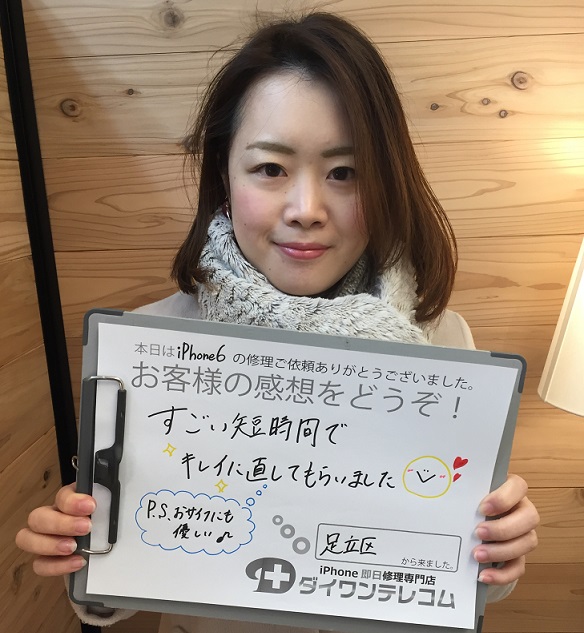 本日は iPhone6 の修理ご依頼ありがとうございました。
お客様の感想をどうぞ！
すごい短時間で
キレイに直してもらいました
P.S. おサイフにも
優しい♪
足立区
から来ました。
iPhone 即日修理専門店
ダイワンテレコム